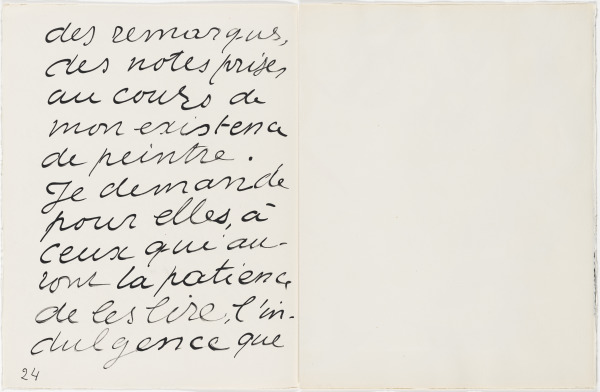 des remarques,
des notes prises
au cours de
mon existence
de peintre.
Je demande
pour elles, à
ceux qui au-
ront la patience
de les lire, l'in-
dulgence que
24